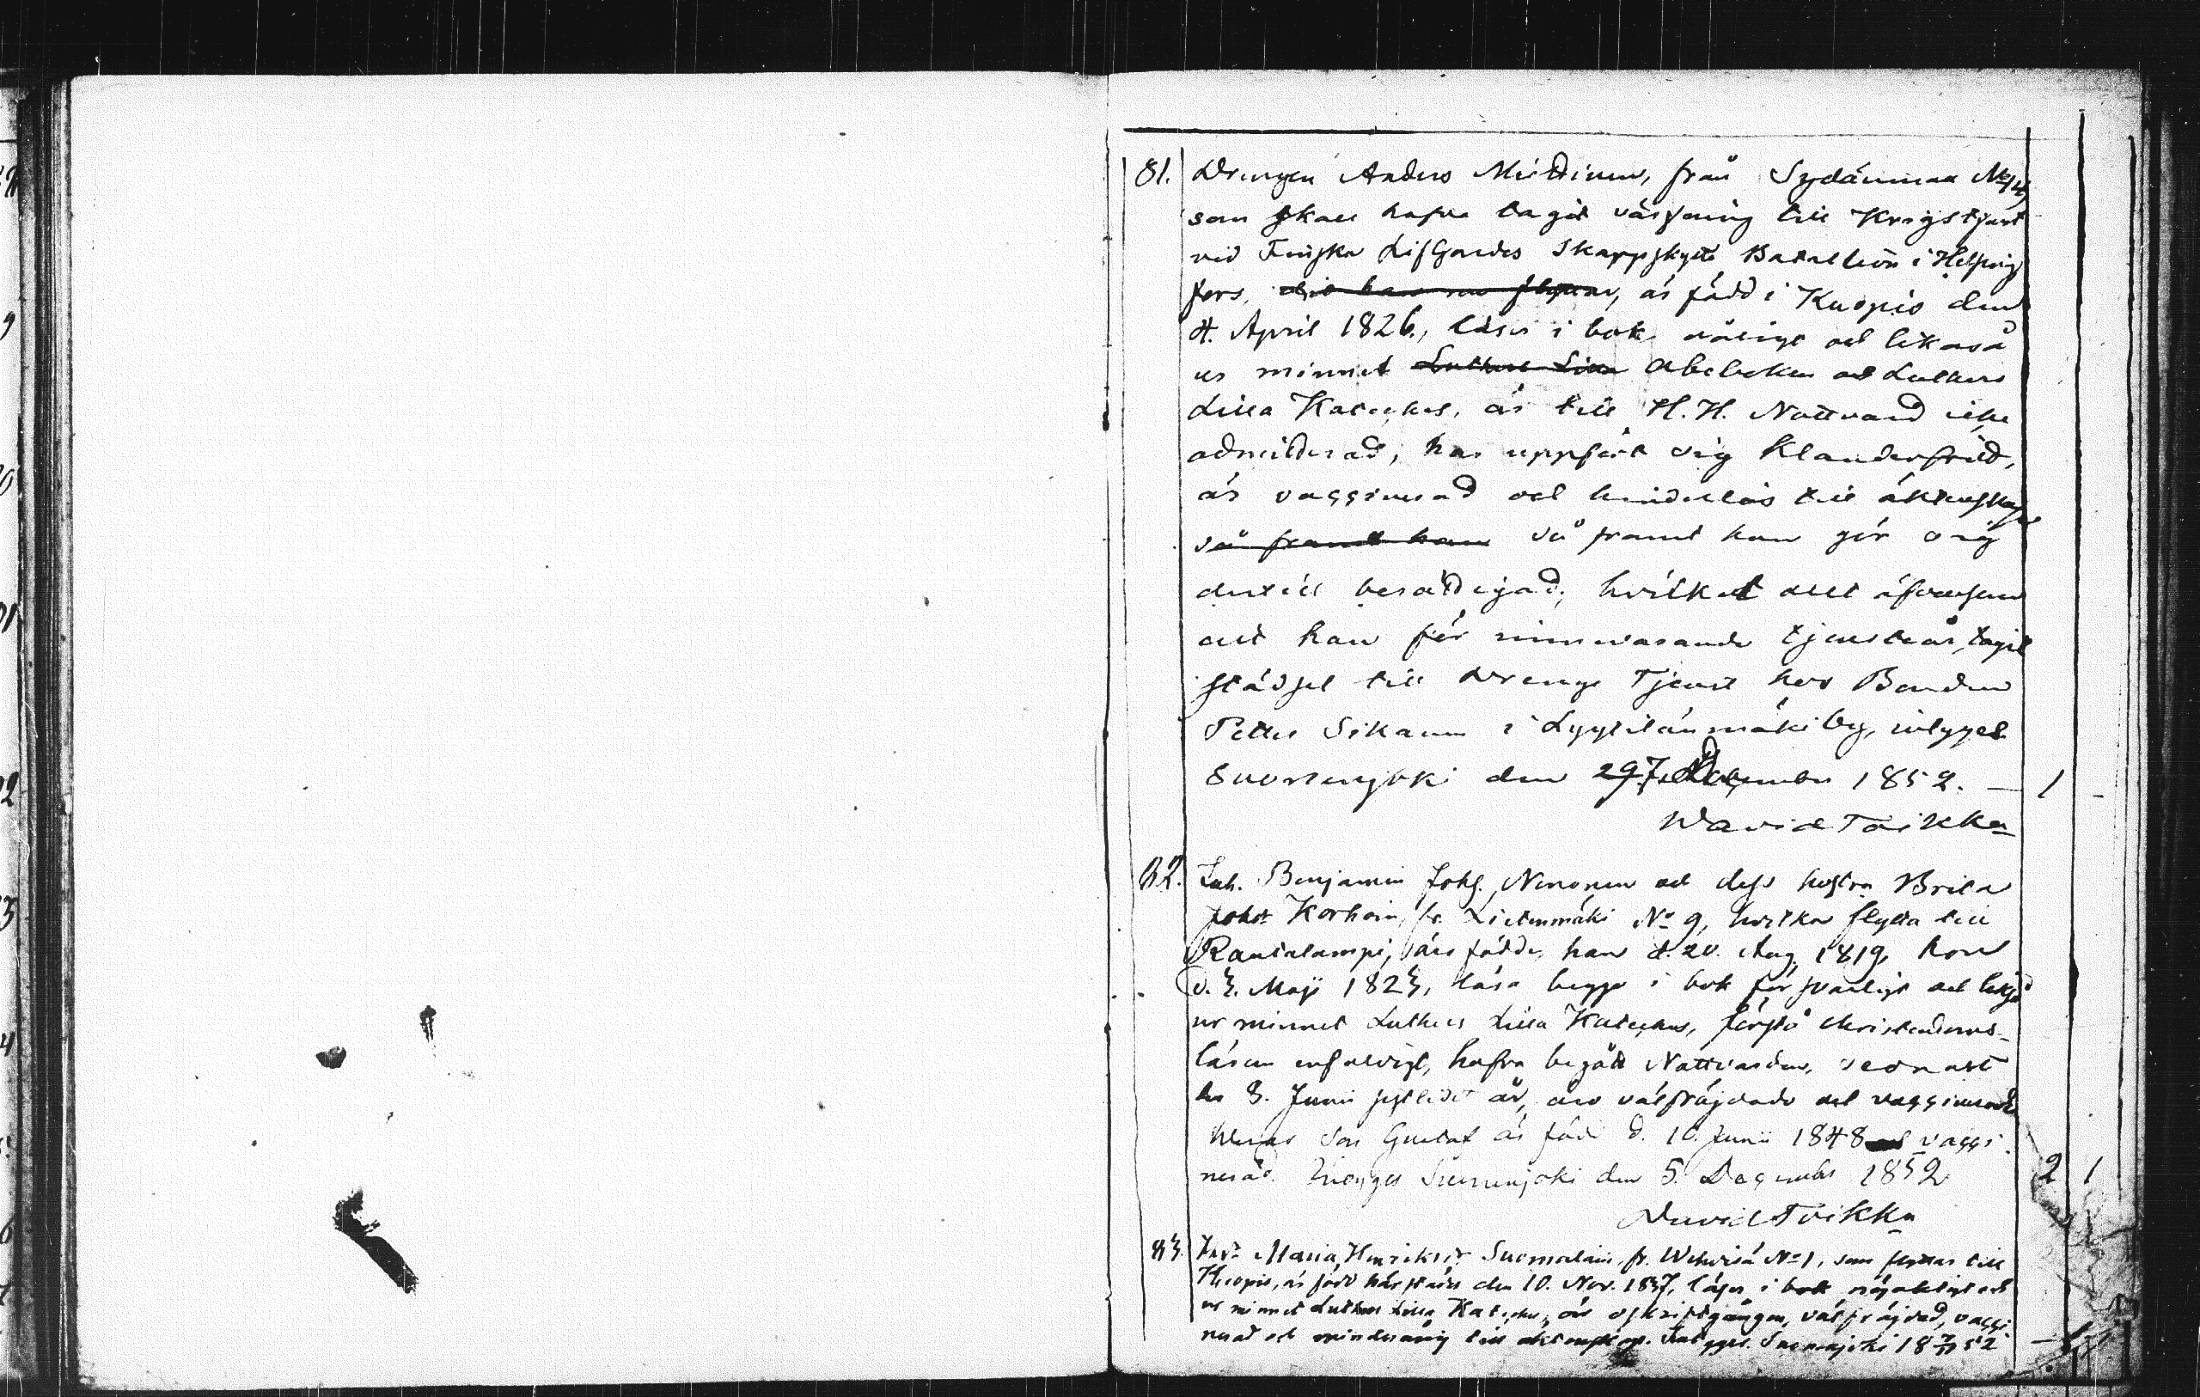 81. Drengen Anders Miettinen, från Sydänmaa № 14
som skall hafva tagit värfning till Krigstjenst
vid Finska LifGardes Skarpskytte Bataillon i Helsing
fors, är född i Kuopio den
4. April 1826, läser i bok och likaså
ur minnet Luthers Lilla Abcboken och Luthers
Lilla Kateches, är till H. H. Nattvard icke
admitterad, har uppfört sig klanderfritt,
är vaccinerad och hinderlös till äktenskap
så framt han så framt han gör sig
dertill berättigad; hvilket allt
att han för innevarande tjensteår, tagit
städsel till Drenge Tjenst hos Bonden
Petter Sikanen i Lyytilänmäki by, intygas
Suonenjoki den December 1852. — 1 -
David Toikka
82. Inh. Benjamin Johs. Nenonen och dess hustru Brita
Johsdr Korhoin, fr. Lietenmäki № 9, hvilka flytta till
Rautalampi, äro födde, han d. 20. Aug. 1819, hon
d. 3. Maji 1823, läsa begge i bok försvarligt och likaså
ur minnet Luthers Lilla Kateches, förstå Christendoms-
läran enfaldigt, hafva begått Nattvarden, sednast
den 8. Junii sistledet år, äro välfräjdade och vaccinerade
Deras Son Gustaf är född d. 10. Junii 1848 vacci-
nerad. Intygas Suonenjoki den 5. December 1852 2 1
David Toikka
83. Maria Henriksdr Suomalain fr. Wehvisä № 1, som flyttar till
Kuopio, är född härstädes den 10. Nov. 1837, läser i bok nöjaktigt och
ur minnet Luthers Lilla Kateches, är oskriftgången, välfräjdad, vacci
nerad och minderårig till äktenskap. Intygas. Suonenjoki 18 52 —